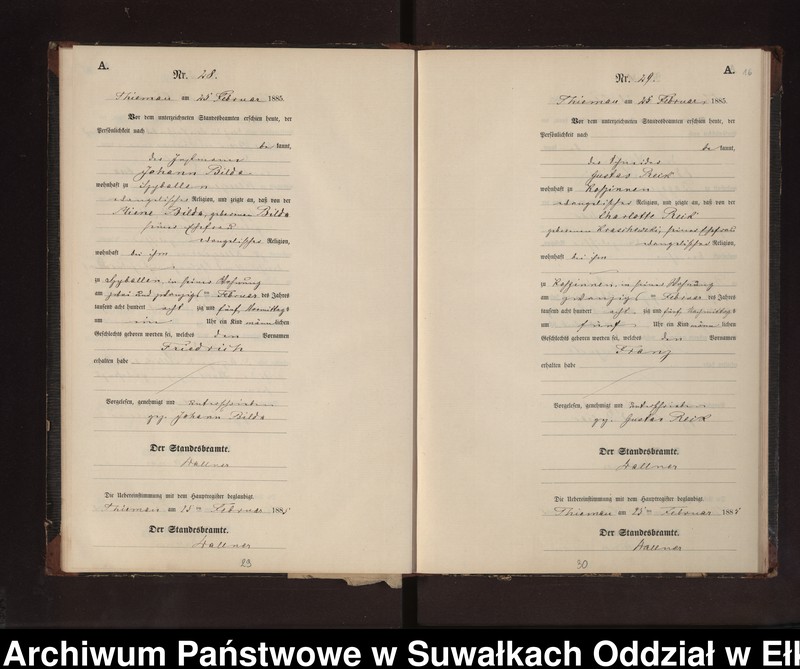 A.
Nr. 28.
am 25 Februar 1885.
Vor dem unterzeichneten Standesbeamten erschien heute, der
Persönlichkeit nach
be kannt,
Johann Bilda
wohnhaft zu Spyballen
evangelischer Religion, und zeigte an, daß von der
Bilda, geborenen Bilda
seiner Ehefrau
evangelischer Religion,
wohnhaft bei ihm
zu Spyballen, in seiner Wohnung
am zwei und zwanzigsten Februar des Jahres
tausend acht hundert acht zig und fünf, Vormittags
um ein Uhr ein Kind männlichen
Geschlechts geboren worden sei, welches den Vornamen
Friedrich
erhalten habe
Vorgelesen, genehmigt und unterschrieben
gez. Johann Bilda
Der Standesbeamte.
Die Uebereinstimmung mit dem Hauptregister beglaubigt.
am 25ten Februar 1885
Der Standesbeamte.
A. 16
Nr. 29.
am 25 Februar 1885.
Vor dem unterzeichneten Standesbeamten erschien heute, der
Persönlichkeit nach
be kannt,
Gustav Reik
wohnhaft zu
evangelischer Religion, und zeigte an, daß von der
Charlotte Reik
geborenen seiner Ehefrau
evangelischer Religion,
wohnhaft bei ihm
zu in seiner Wohnung
am zwanzigsten Februar des Jahres
tausend acht hundert acht zig und fünf Nachmittags
um fünf Uhr ein Kind männlichen
Geschlechts geboren worden sei, welches den Vornamen
Franz
erhalten habe
Vorgelesen, genehmigt und unterschrieben
gez. Gustav Reik
Der Standesbeamte.
Die Uebereinstimmung mit dem Hauptregister beglaubigt.
am 25ten Februar 1885
Der Standesbeamte.
30
Archiwum Państwowe w Suwałkach Oddział w Eł